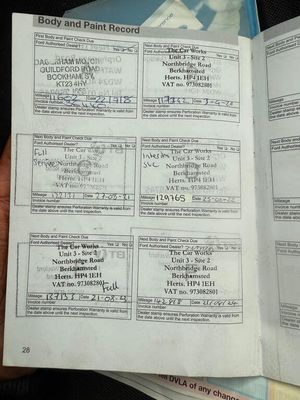 Body and Paint Record
Next Body and Paint Check Due
Ford Authorised Dealer? Yes No
GUILDFORD ROAD
BOOKHAM SY
KT23 4HY
Mileage
Invoice number
Dealer stamp ensures Perforation Warranty is valid from
the date above until the next inspection.
Next Body and Paint Check Due
Ford Authorised Dealer? Yes No
The Car Works
Unit 3 - Site 2
Northbridge Road
Berkhamsted
Herts. HP4 1EH
VAT no. 973082801
Mileage
Invoice number
Dealer stamp ensures Perforation Warranty is valid from
the date above until the next inspection.
Next Body and Paint Check Due
Ford Authorised Dealer? Yes No
Full
The Car Works
Unit 3 - Site 2
Northbridge Road
Berkhamsted
Herts. HP4 1EH
VAT no. 973082801
Mileage
Invoice number
Dealer stamp ensures Perforation Warranty is valid from
the date above until the next inspection.
Next Body and Paint Check Due
Ford Authorised Dealer? Yes No
The Car Works
Unit 3 - Site 2
Northbridge Road
Berkhamsted
Herts. HP4 1EH
VAT no. 973082801
Mileage 129765
Invoice number
Dealer stamp ensures Perforation Warranty is valid from
the date above until the next inspection.
Next Body and Paint Check Due
Ford Authorised Dealer? Yes No
The Car Works
Unit 3 - Site 2
Northbridge Road
Berkhamsted
Herts. HP4 1EH
VAT no. 973082801
Full
Mileage
Invoice number
Dealer stamp ensures Perforation Warranty is valid from
the date above until the next inspection.
Next Body and Paint Check Due
Ford Authorised Dealer?
The Car Works
Unit 3 - Site 2
Northbridge Road
Berkhamsted
Herts. HP4 1EH
VAT no. 973082801
Mileage
Invoice number
Dealer stamp ensures Perforation Warranty is valid from
the date above until the next inspection.
28
DVLA of any change